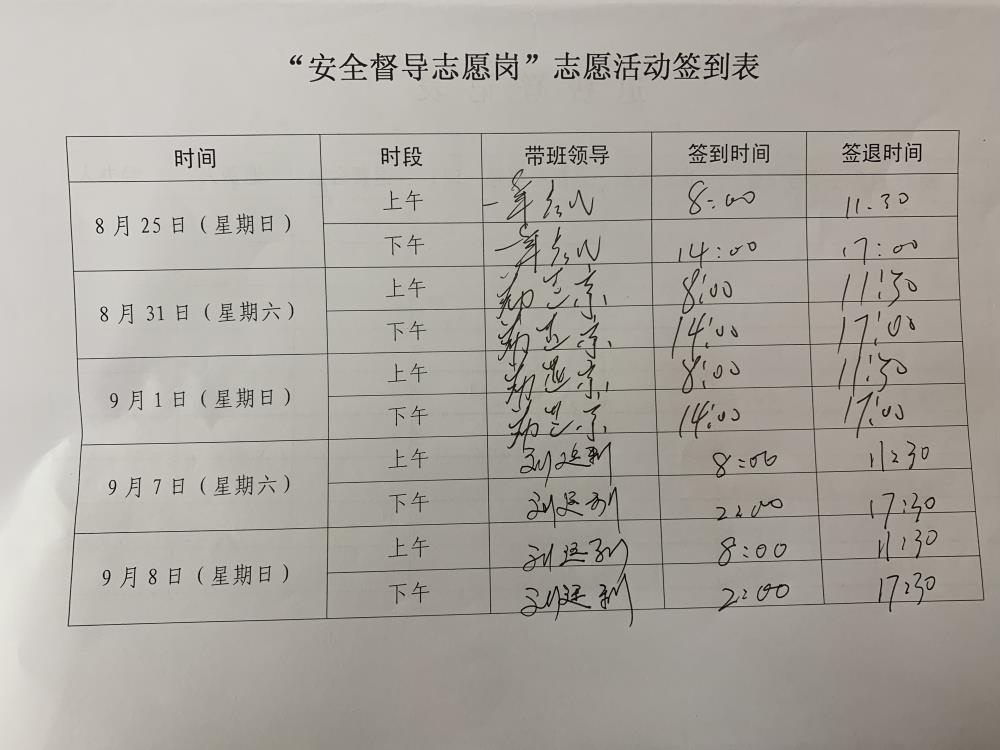 “安全督导志愿岗”志愿活动签到表
时间 时段 带班领导 签到时间 签退时间
8月25日（星期日） 上午 8:00 11:30
下午 14:00 17:00
8月31日（星期六） 上午 8:00 11:30
下午 14:00 17:00
9月1日（星期日） 上午 8:00 11:30
下午 14:00 17:00
9月7日（星期六） 上午 8:00 11:30
下午 2:00 17:30
9月8日（星期日） 上午 8:00 11:30
下午 2:00 17:30